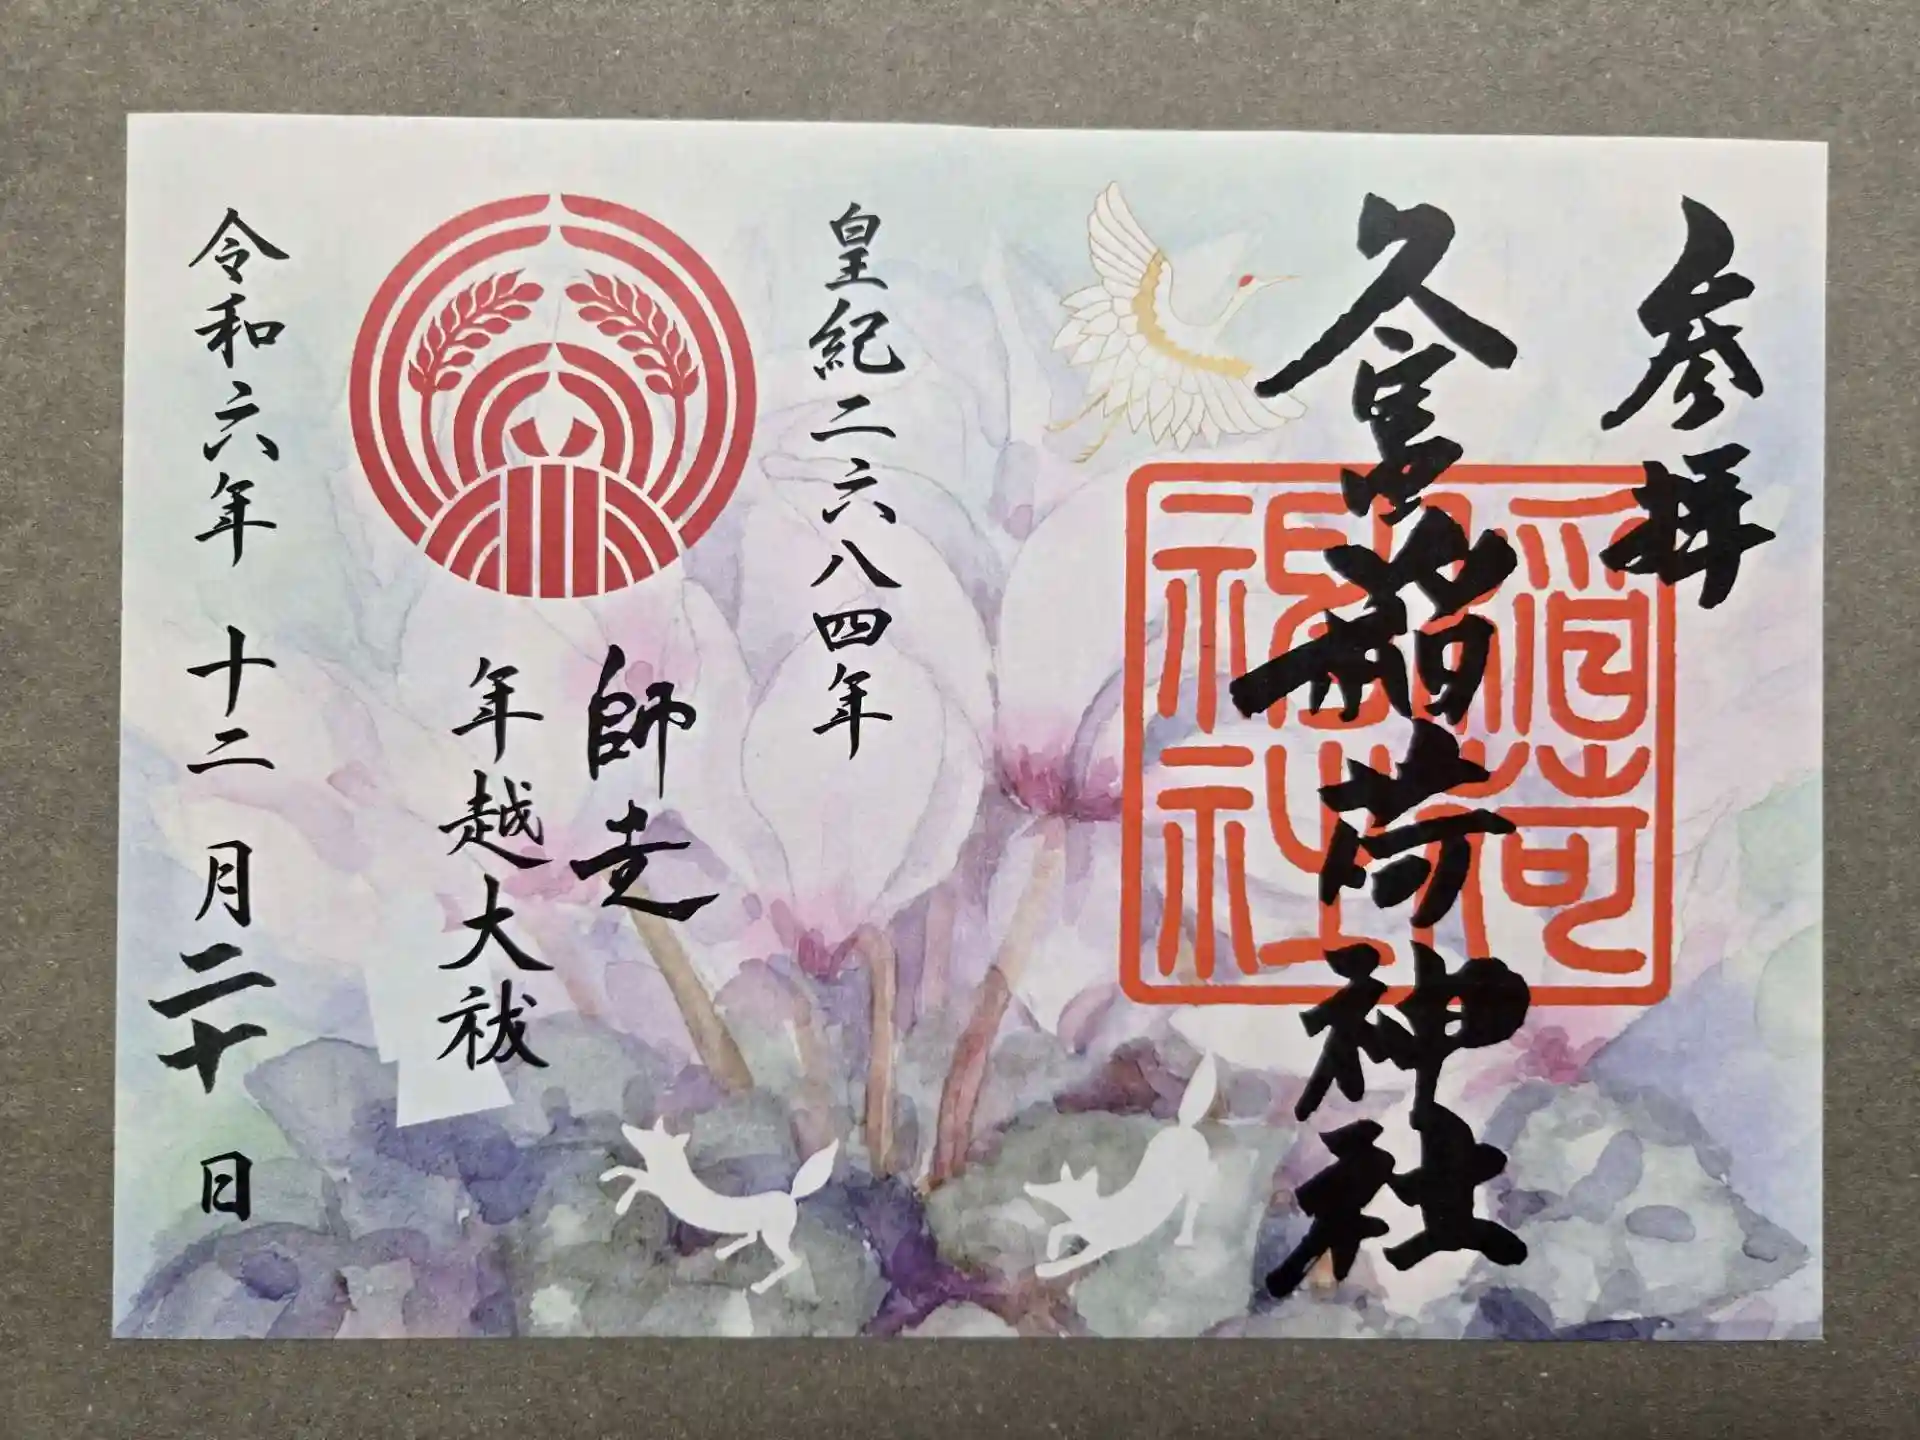 参拝
久富稲荷神社
稲荷
神社
皇紀二六八四年
師走
年越大祓
令和六年 十二月二十日